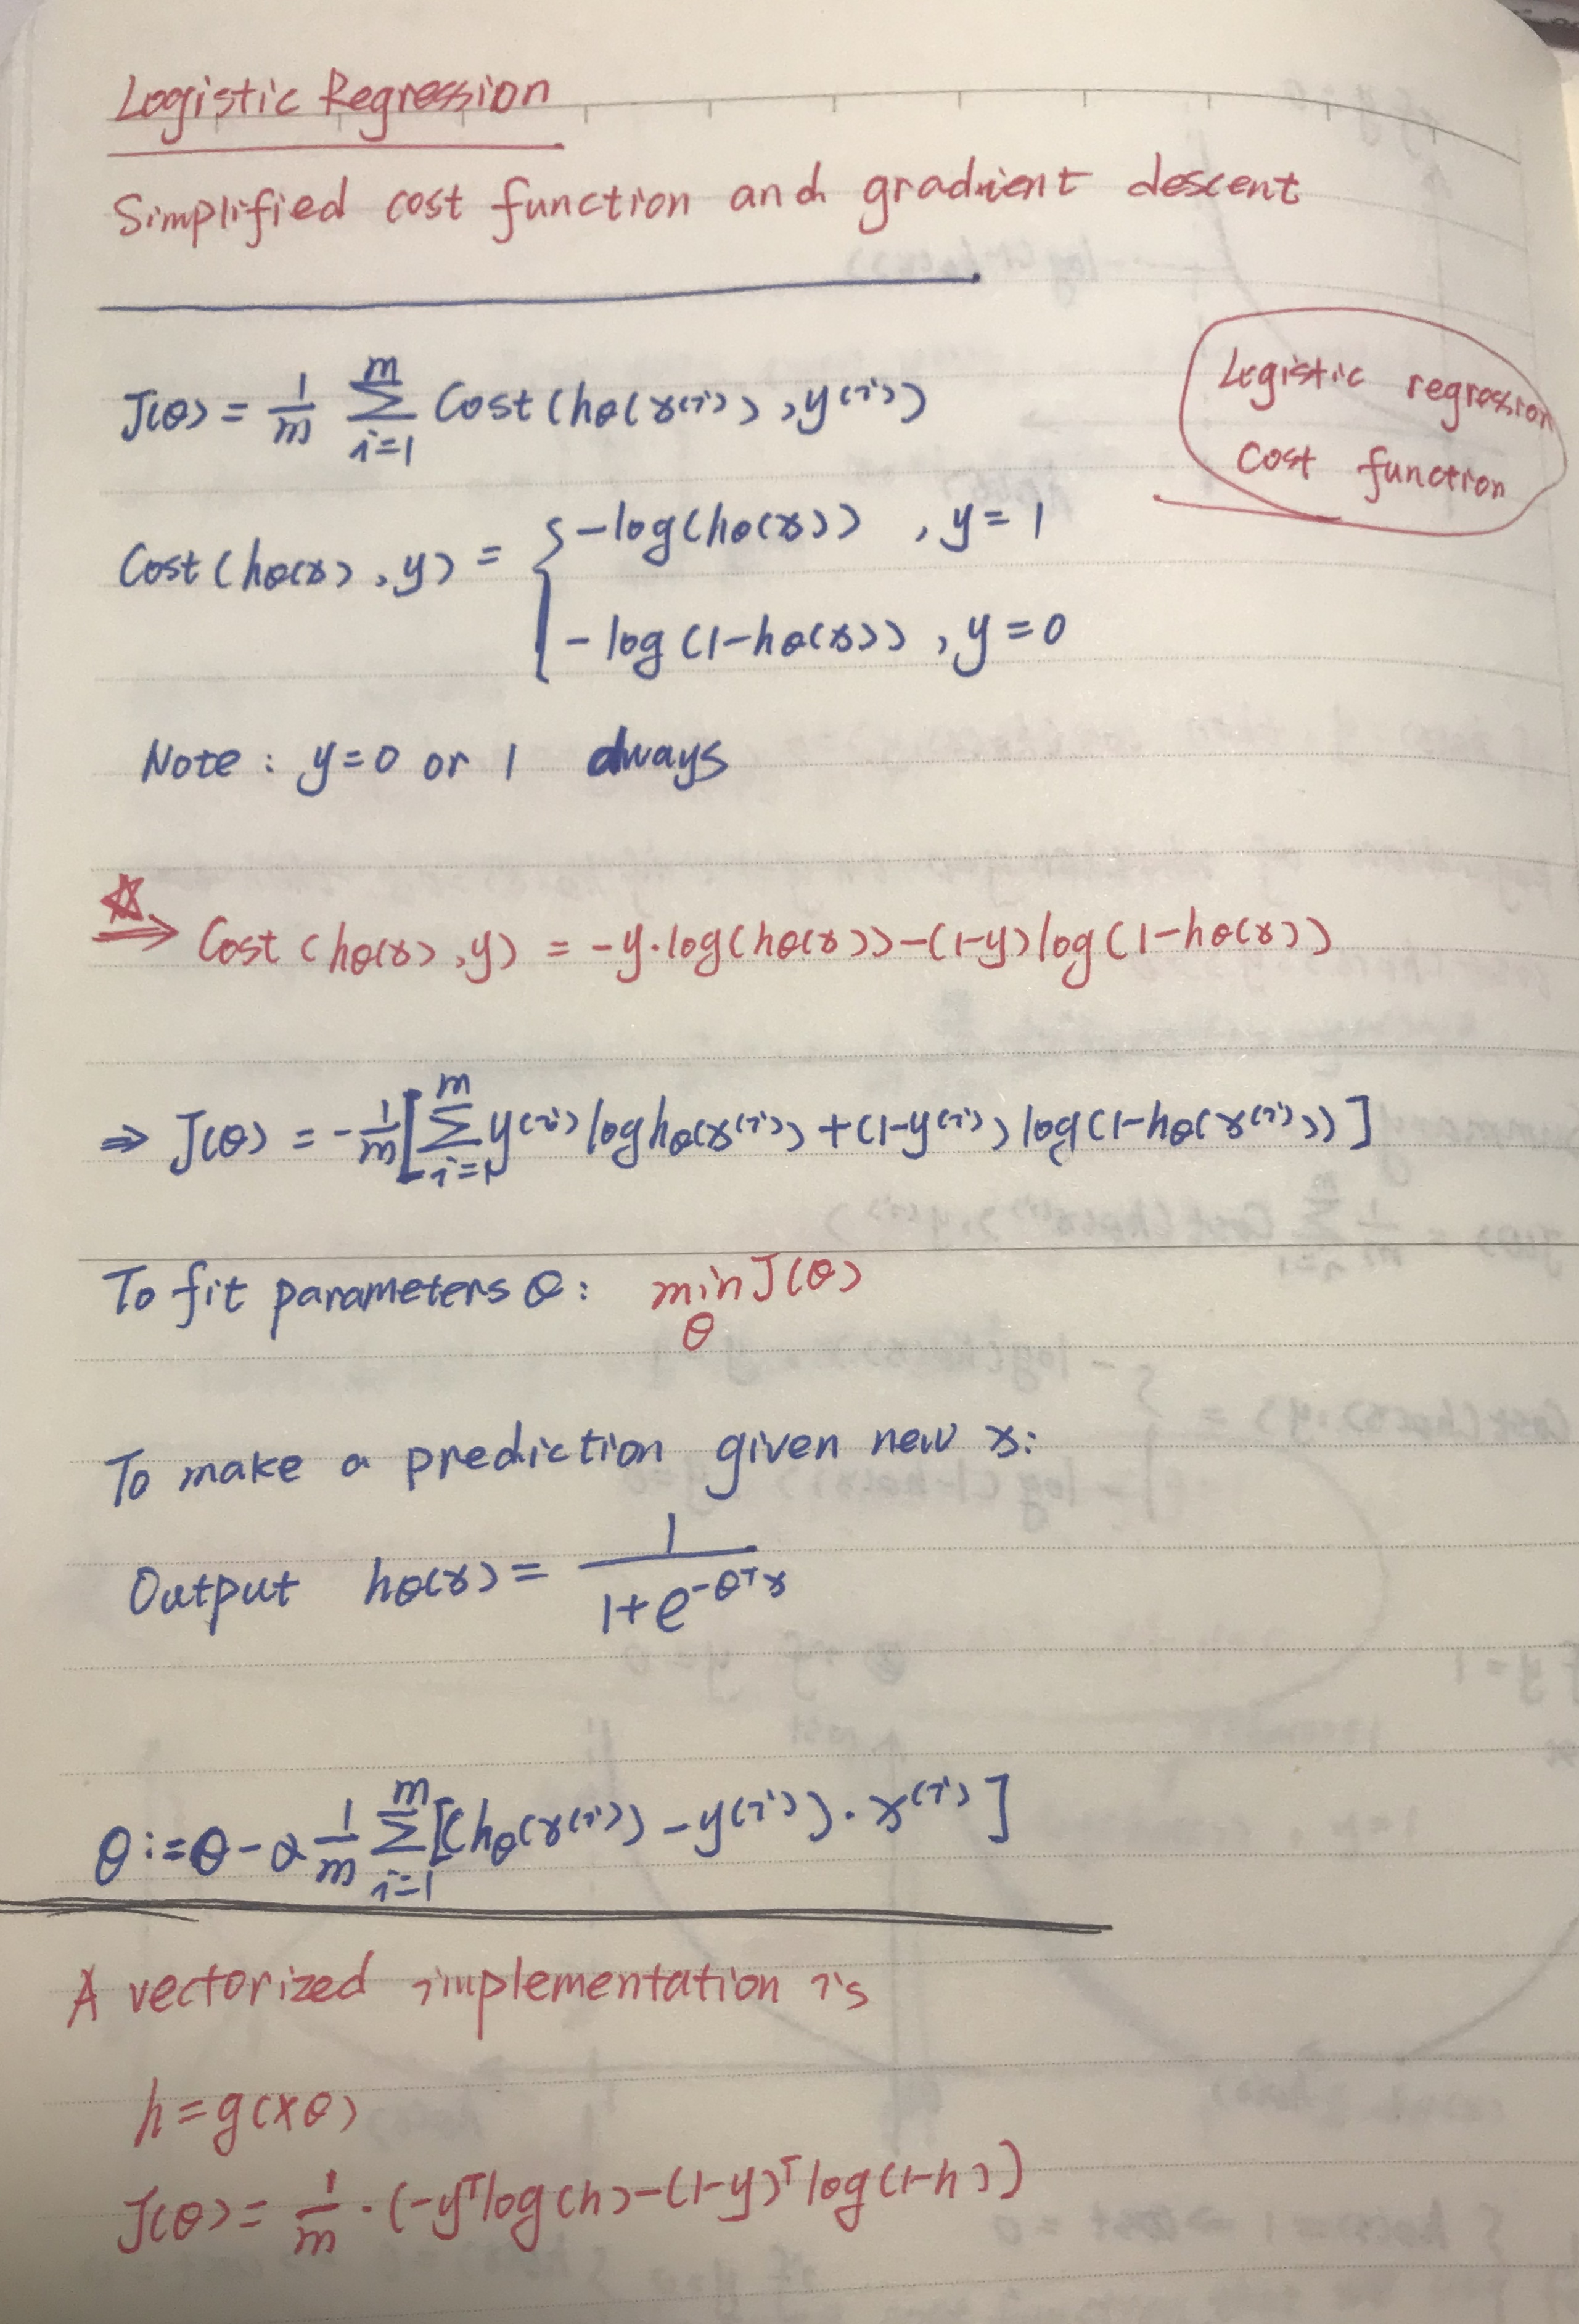 Logistic Regression
Simplified cost function and gradient descent
J(θ) = 1/m ∑_{i=1}^{m} Cost(hθ(x^(i)), y^(i))
Logistic regression
cost function
Cost(hθ(x), y) = { -log(hθ(x)) , y=1
-log(1-hθ(x)) , y=0
Note: y=0 or 1 always
☆ ⇒ Cost(hθ(x), y) = -y·log(hθ(x))-(1-y)log(1-hθ(x))
⇒ J(θ) = -1/m[∑_{i=1}^{m} y^(i) log hθ(x^(i)) + (1-y^(i)) log(1-hθ(x^(i)))]
To fit parameters θ: min_θ J(θ)
To make a prediction given new x:
Output hθ(x) = 1/(1+e^{-θ^T x})
θ := θ - α 1/m ∑_{i=1}^{m} [(hθ(x^(i)) - y^(i)) · x^(i)]
A vectorized implementation is
h=g(Xθ)
J(θ) = 1/m · (-y^T log(h) - (1-y)^T log(1-h))